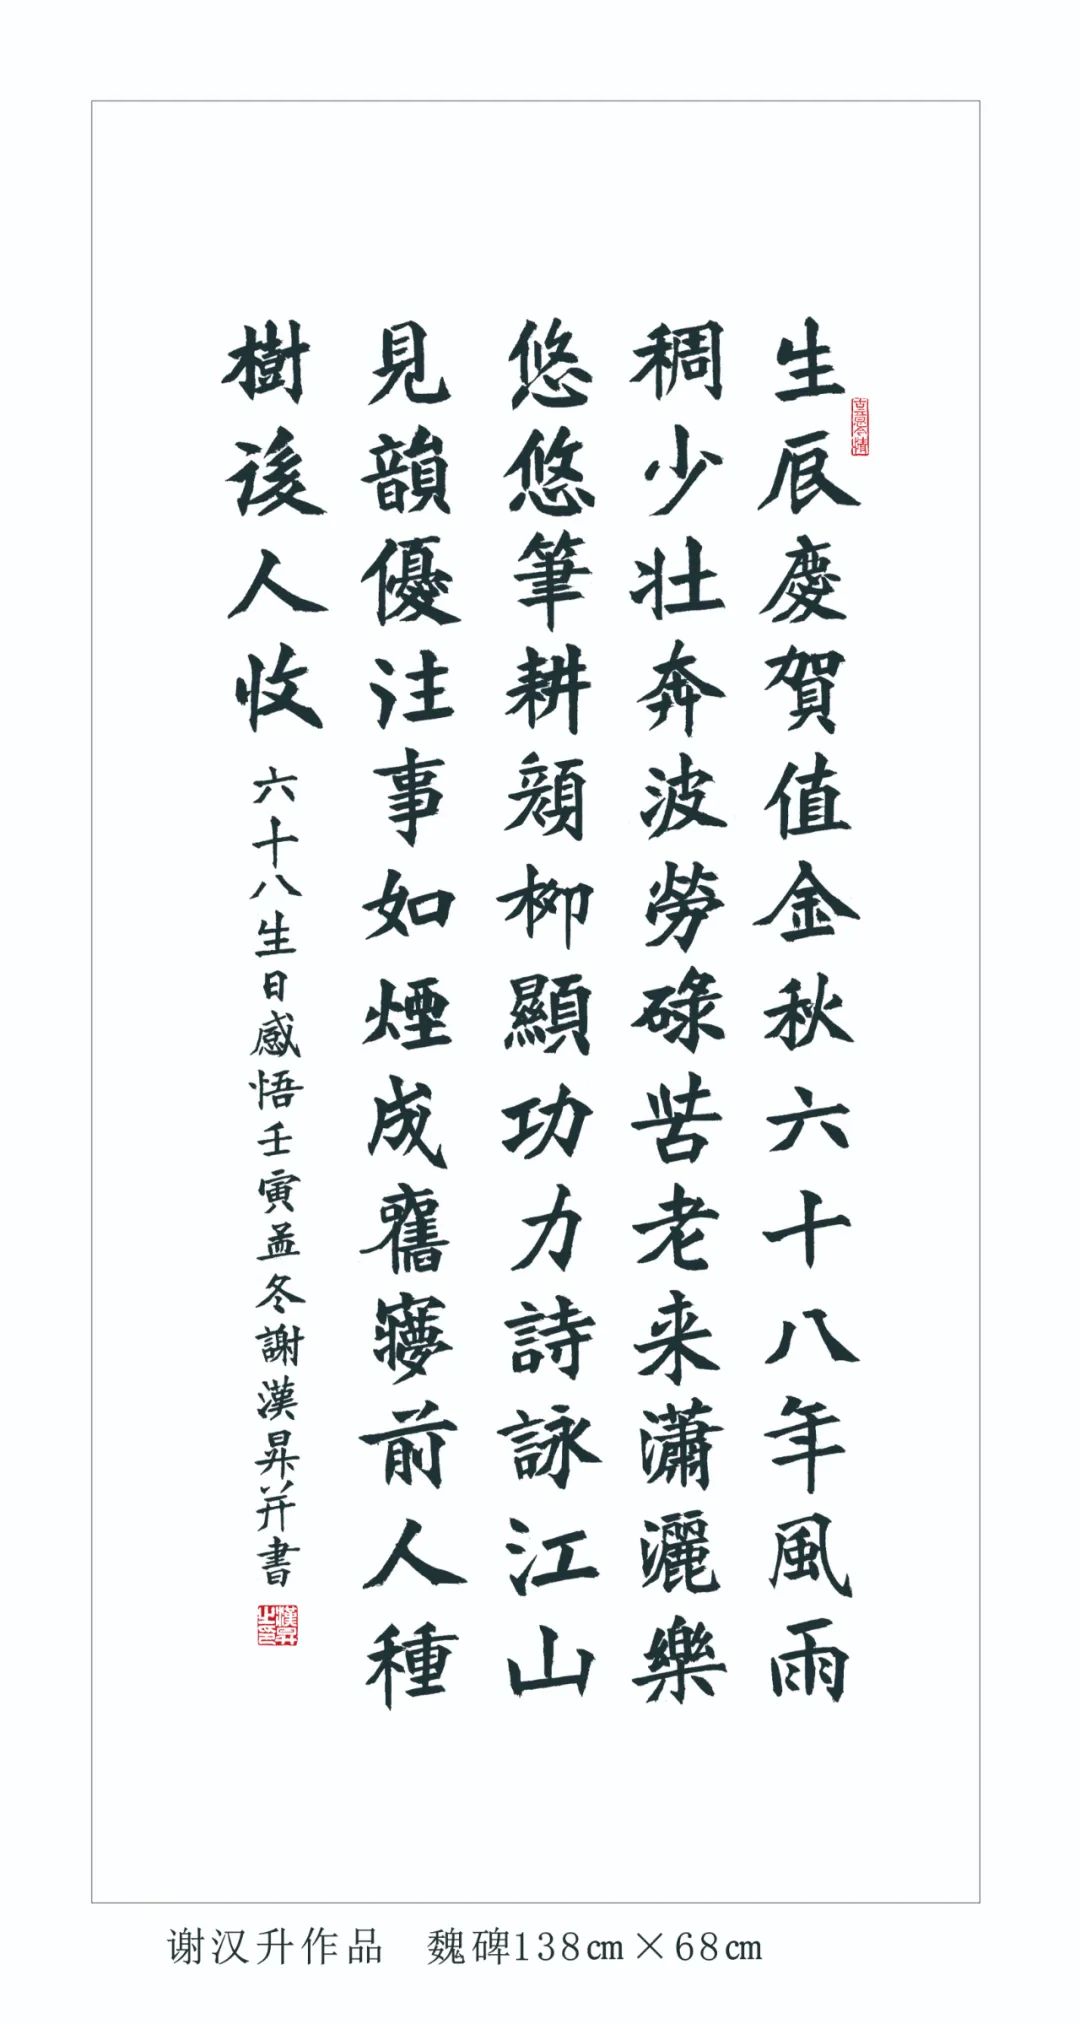 生辰慶賀值金秋六十八年風雨
稠少壮奔波勞碌苦老来瀟灑樂
悠悠筆耕顔柳顯功力詩詠江山
見韻優往事如煙成舊夢前人種
樹後人收
六十八生日感悟壬寅孟冬謝漢昇并書
古意今情
漢昇之印
谢汉升作品　魏碑138㎝×68㎝